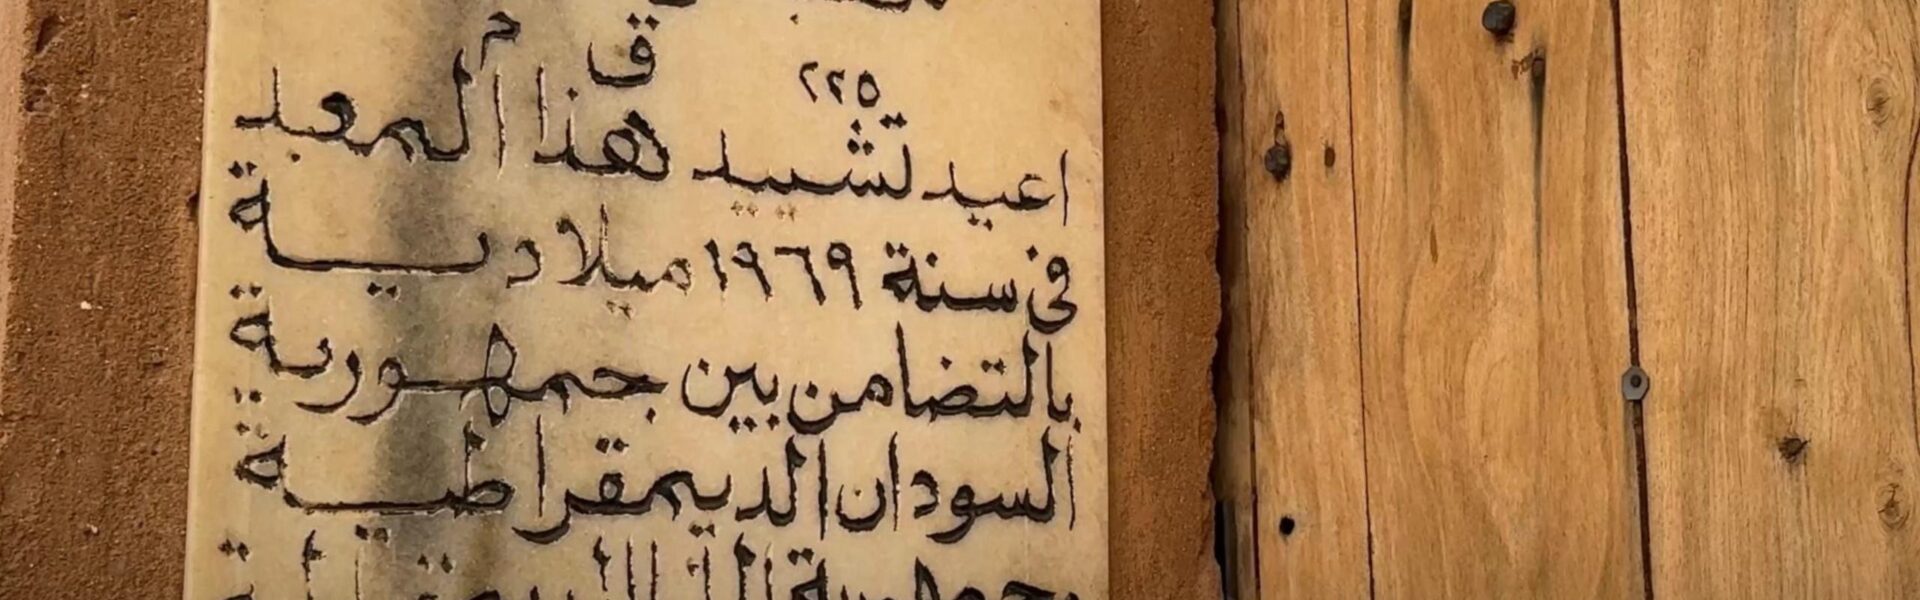 ٢٢٥ ق م
اعيد تشييد هذا المعبد
فى سنة ١٩٦٩ ميلادية
بالتضامن بين جمهورية
السودان الديمقراطية